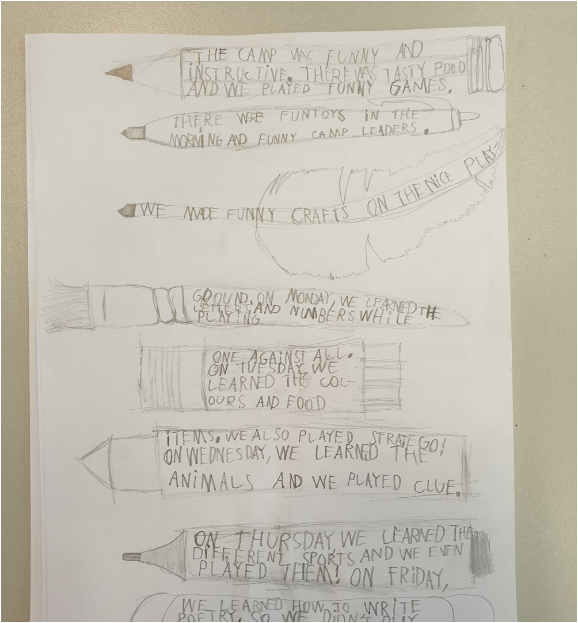 THE CAMP WAS FUNNY AND
INSTRUCTIVE. THERE WAS TASTY FOOD
AND WE PLAYED FUNNY GAMES.
THERE WERE FUNTOYS IN THE
MORNING AND FUNNY CAMP LEADERS.
WE MADE FUNNY CRAFTS ON THE NICE PLAY-
GROUND. ON MONDAY, WE LEARNED THE
LETTERS AND NUMBERS WHILE
PLAYING
ONE AGAINST ALL.
ON TUESDAY, WE
LEARNED THE COL-
OURS AND FOOD
ITEMS. WE ALSO PLAYED STRATEGO!
ON WEDNESDAY, WE LEARNED THE
ANIMALS AND WE PLAYED CLUE.
ON THURSDAY, WE LEARNED THE
DIFFERENT SPORTS AND WE EVEN
PLAYED THEM! ON FRIDAY,
WE LEARNED HOW TO WRITE
POETRY. SO WE DIDN'T PLAY